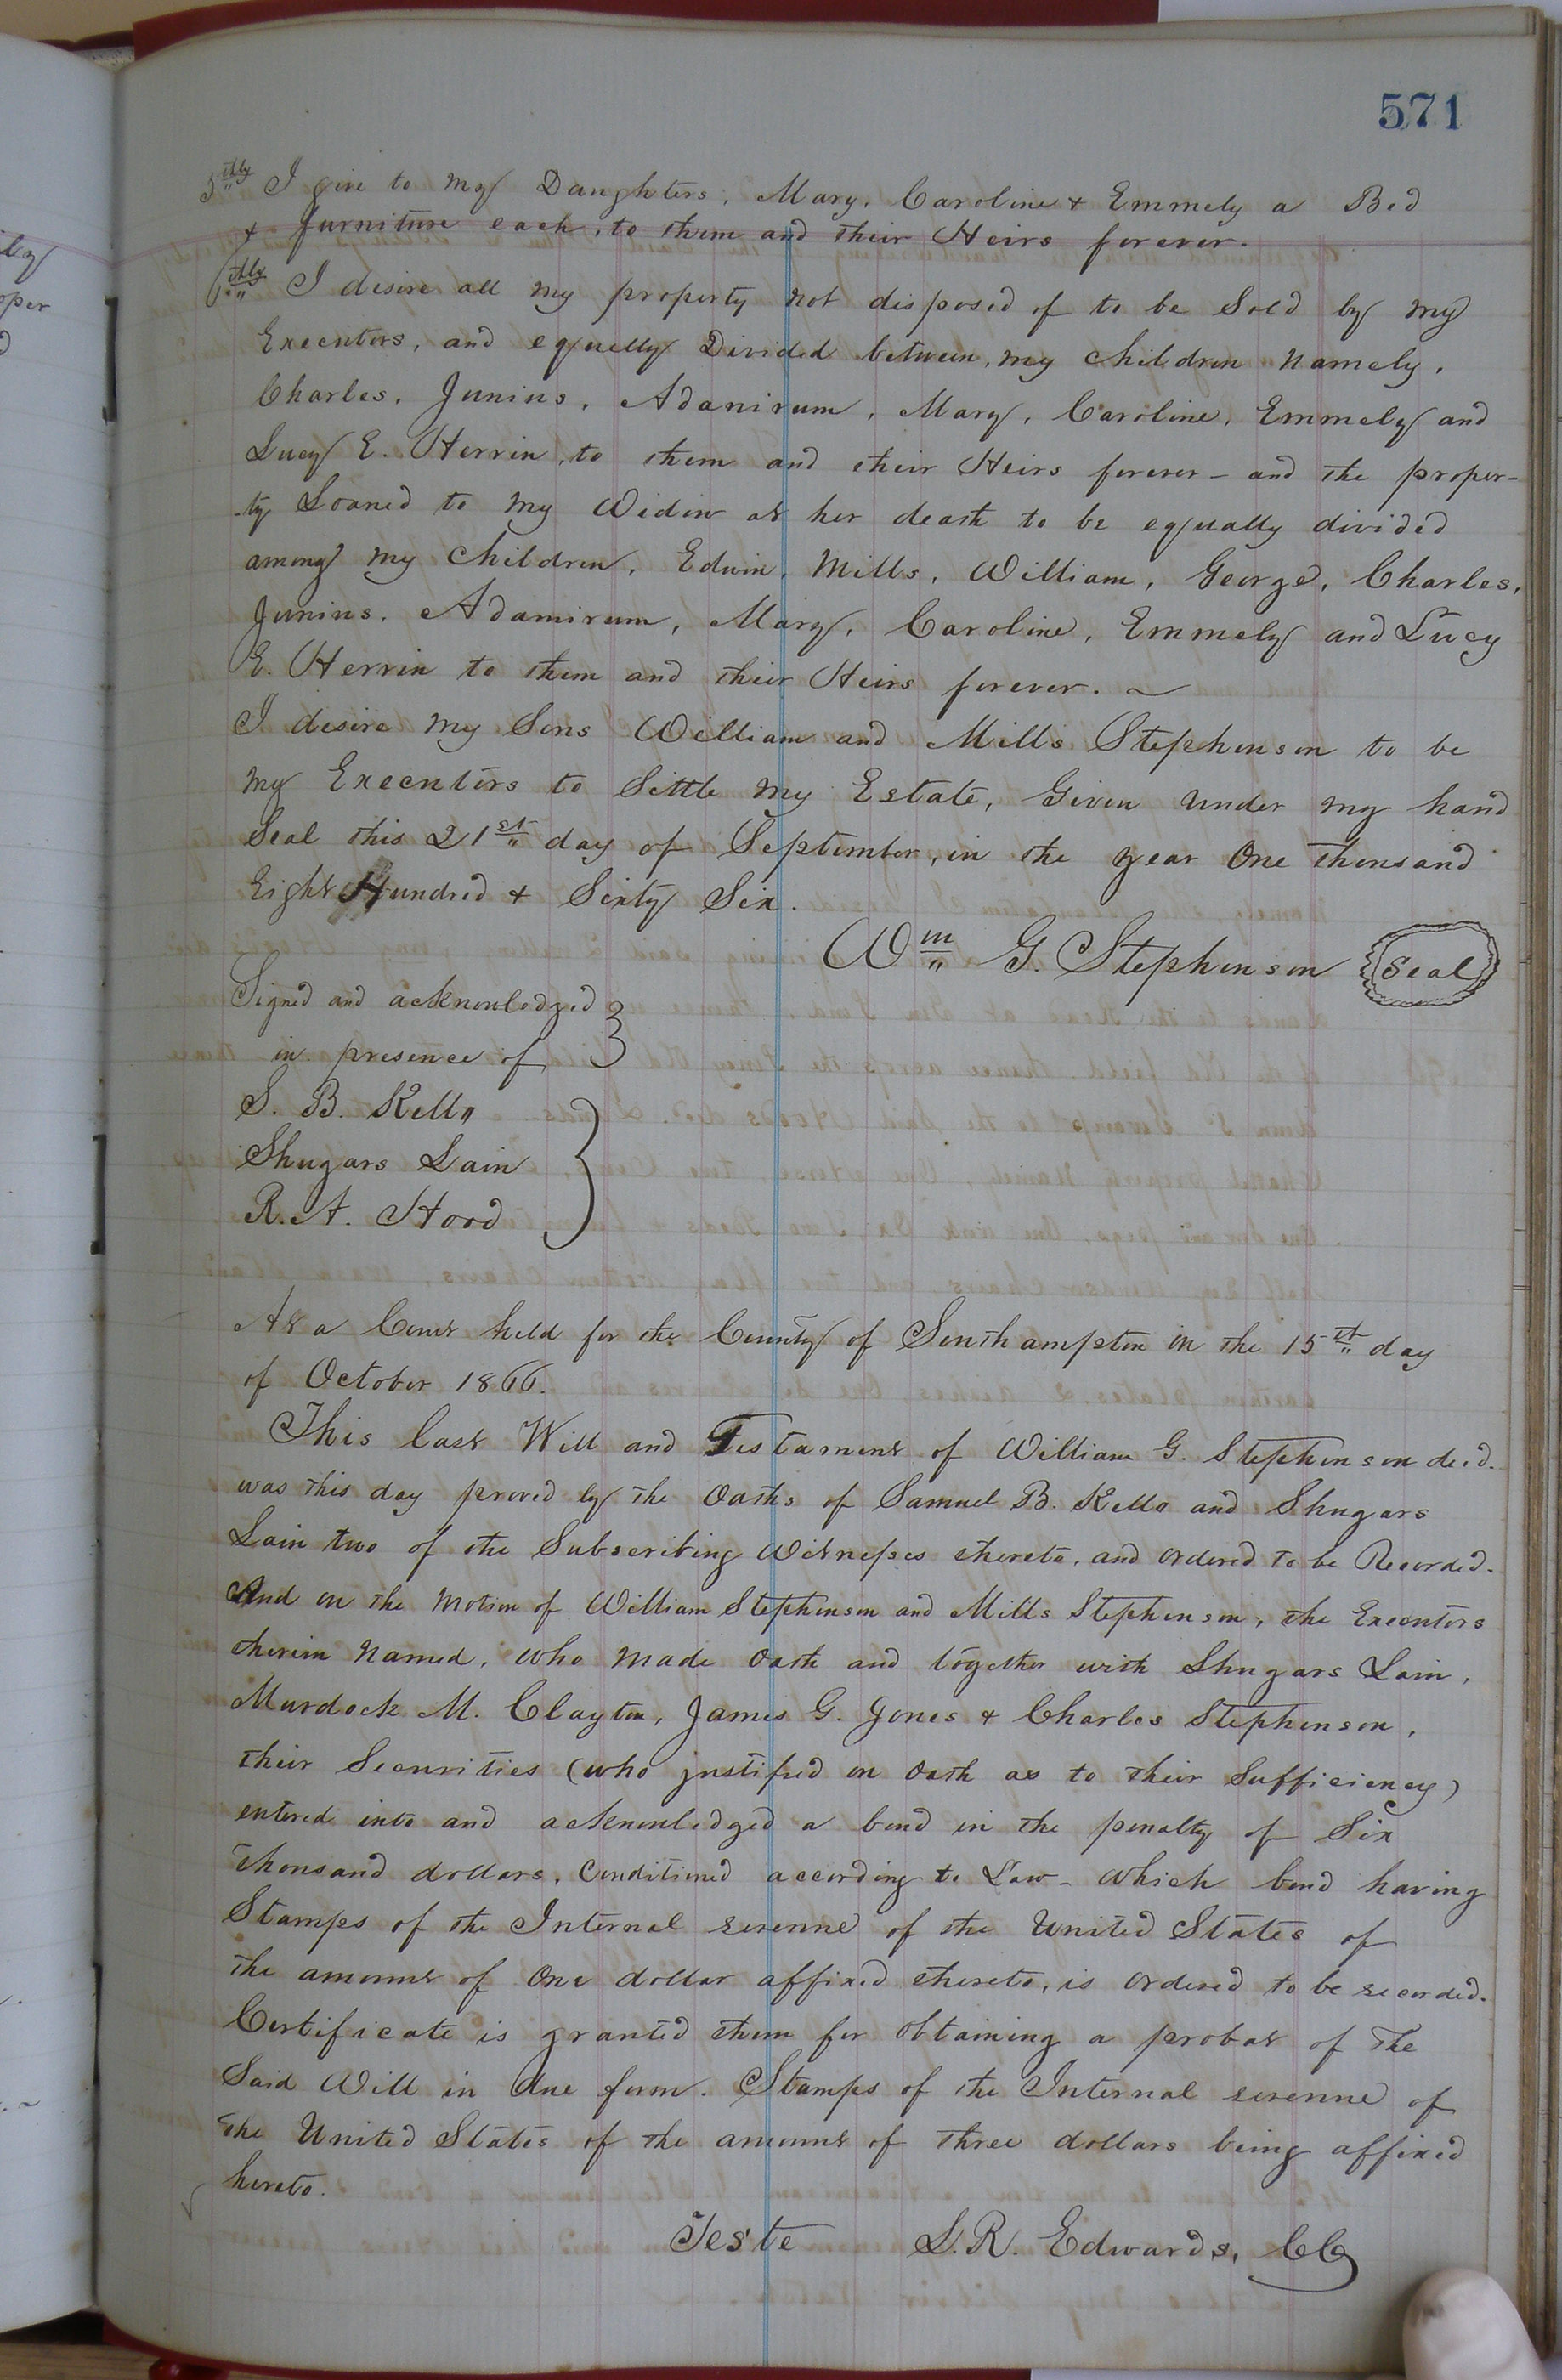 571
5thly I give to my Daughters, Mary, Caroline & Emmely a Bed
& furniture each, to them and their Heirs forever.
6thly I desire all my property not disposed of to be Sold by my
Executors, and equally Divided between, my children namely,
Charles, Junius, Adanirum, Mary, Caroline, Emmely and
Lucy E. Herrin, to them and their Heirs forever - and the proper-
-ty Loaned to my Widow at her death to be equally divided
among my children, Edwin, Mills, William, George, Charles,
Junius, Adamirum, Mary, Caroline, Emmely and Lucy
E. Herrin to them and their Heirs forever. ~
I desire my Sons William and Mills Stephenson to be
my Executors to Settle my Estate, Given under my hand
Seal this 21st day of September, in the year One thousand
Eight Hundred & Sixty Six.
Wm G. Stephenson Seal
Signed and acknowledged
in presence of
S. B. Kello
Shugars Lain
R. A. Hood
At a Court held for the County of Southampton on the 15th day
of October 1866.
This last Will and Testament of William G. Stephenson decd.
was this day proved by the Oaths of Samuel B. Kello and Shugars
Lain two of the Subscribing Witnesses thereto, and ordered to be Recorded.
And on the motion of William Stephenson and Mills Stephenson, the Executors
therein named, who made oath and together with Shugars Lain,
Murdock M. Clayton, James G. Jones & Charles Stephenson,
their Securities (who justified on oath as to their Sufficiency)
entered into and acknowledged a bond in the penalty of Six
thousand dollars, Conditioned according to Law - which bond having
Stamps of the Internal revenue of the United States of
the amount of One dollar affixed thereto, is ordered to be recorded.
Certificate is granted them for obtaining a probat of the
Said Will in due form. Stamps of the Internal revenue of
the United States of the amount of three dollars being affixed
hereto.
Teste L. R. Edwards, CC